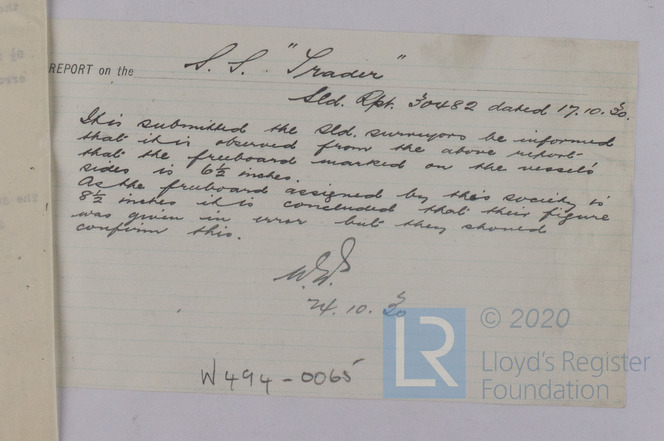 REPORT on the S. S. "Trader"
Sld. Rpt. 30482 dated 17.10.30.
It is submitted the Sld. surveyors be informed
that it is observed from the above report
that the freeboard marked on the vessel's
sides is 6½ inches.
As the freeboard assigned by this society is
8½ inches it is concluded that their figure
was given in error but they should
confirm this.
24.10.30
W494-0065
LR
© 2020
Lloyd's Register
Foundation